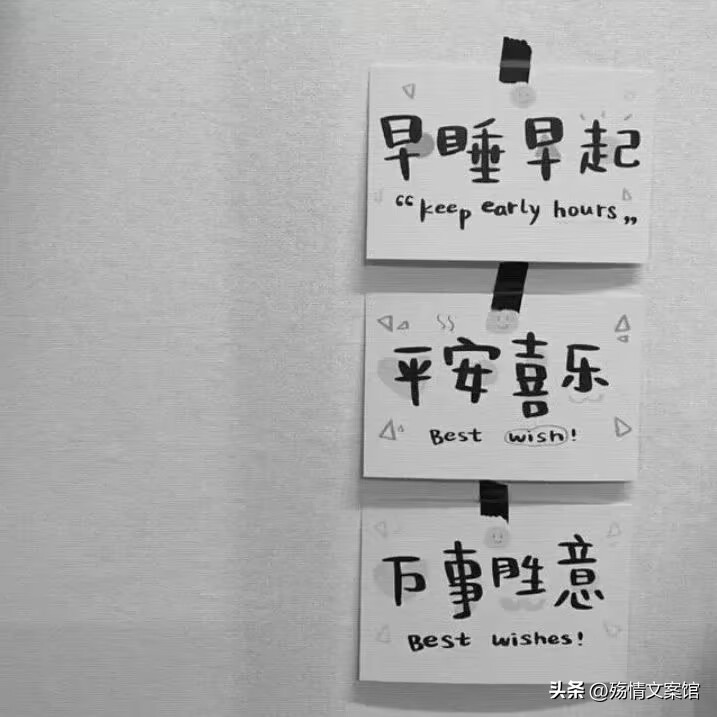 早睡早起
“keep early hours„
平安喜乐
Best wish!
万事胜意
Best wishes!
头条 @殇情文案馆